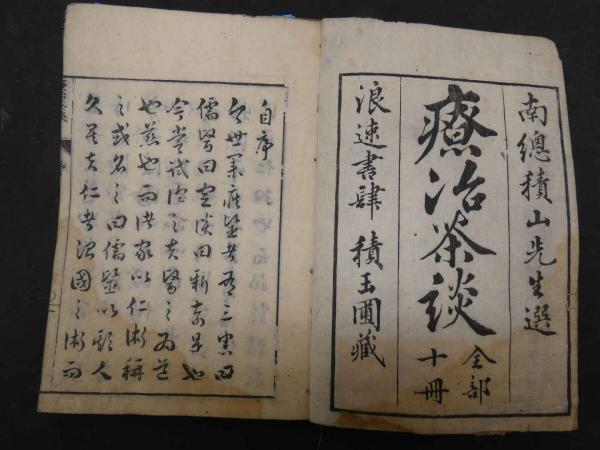 南總積山先生選
療治茶談
全部
十冊
浪速書肆 積玉圃藏
自序
今世業疾醫者有三害曰
儒醫曰空談曰新奇是也
今嘗試論之夫醫之為道
也慈也而諸家以仁術稱
之或名之曰儒醫以駭人
久矣夫仁者治國之術而